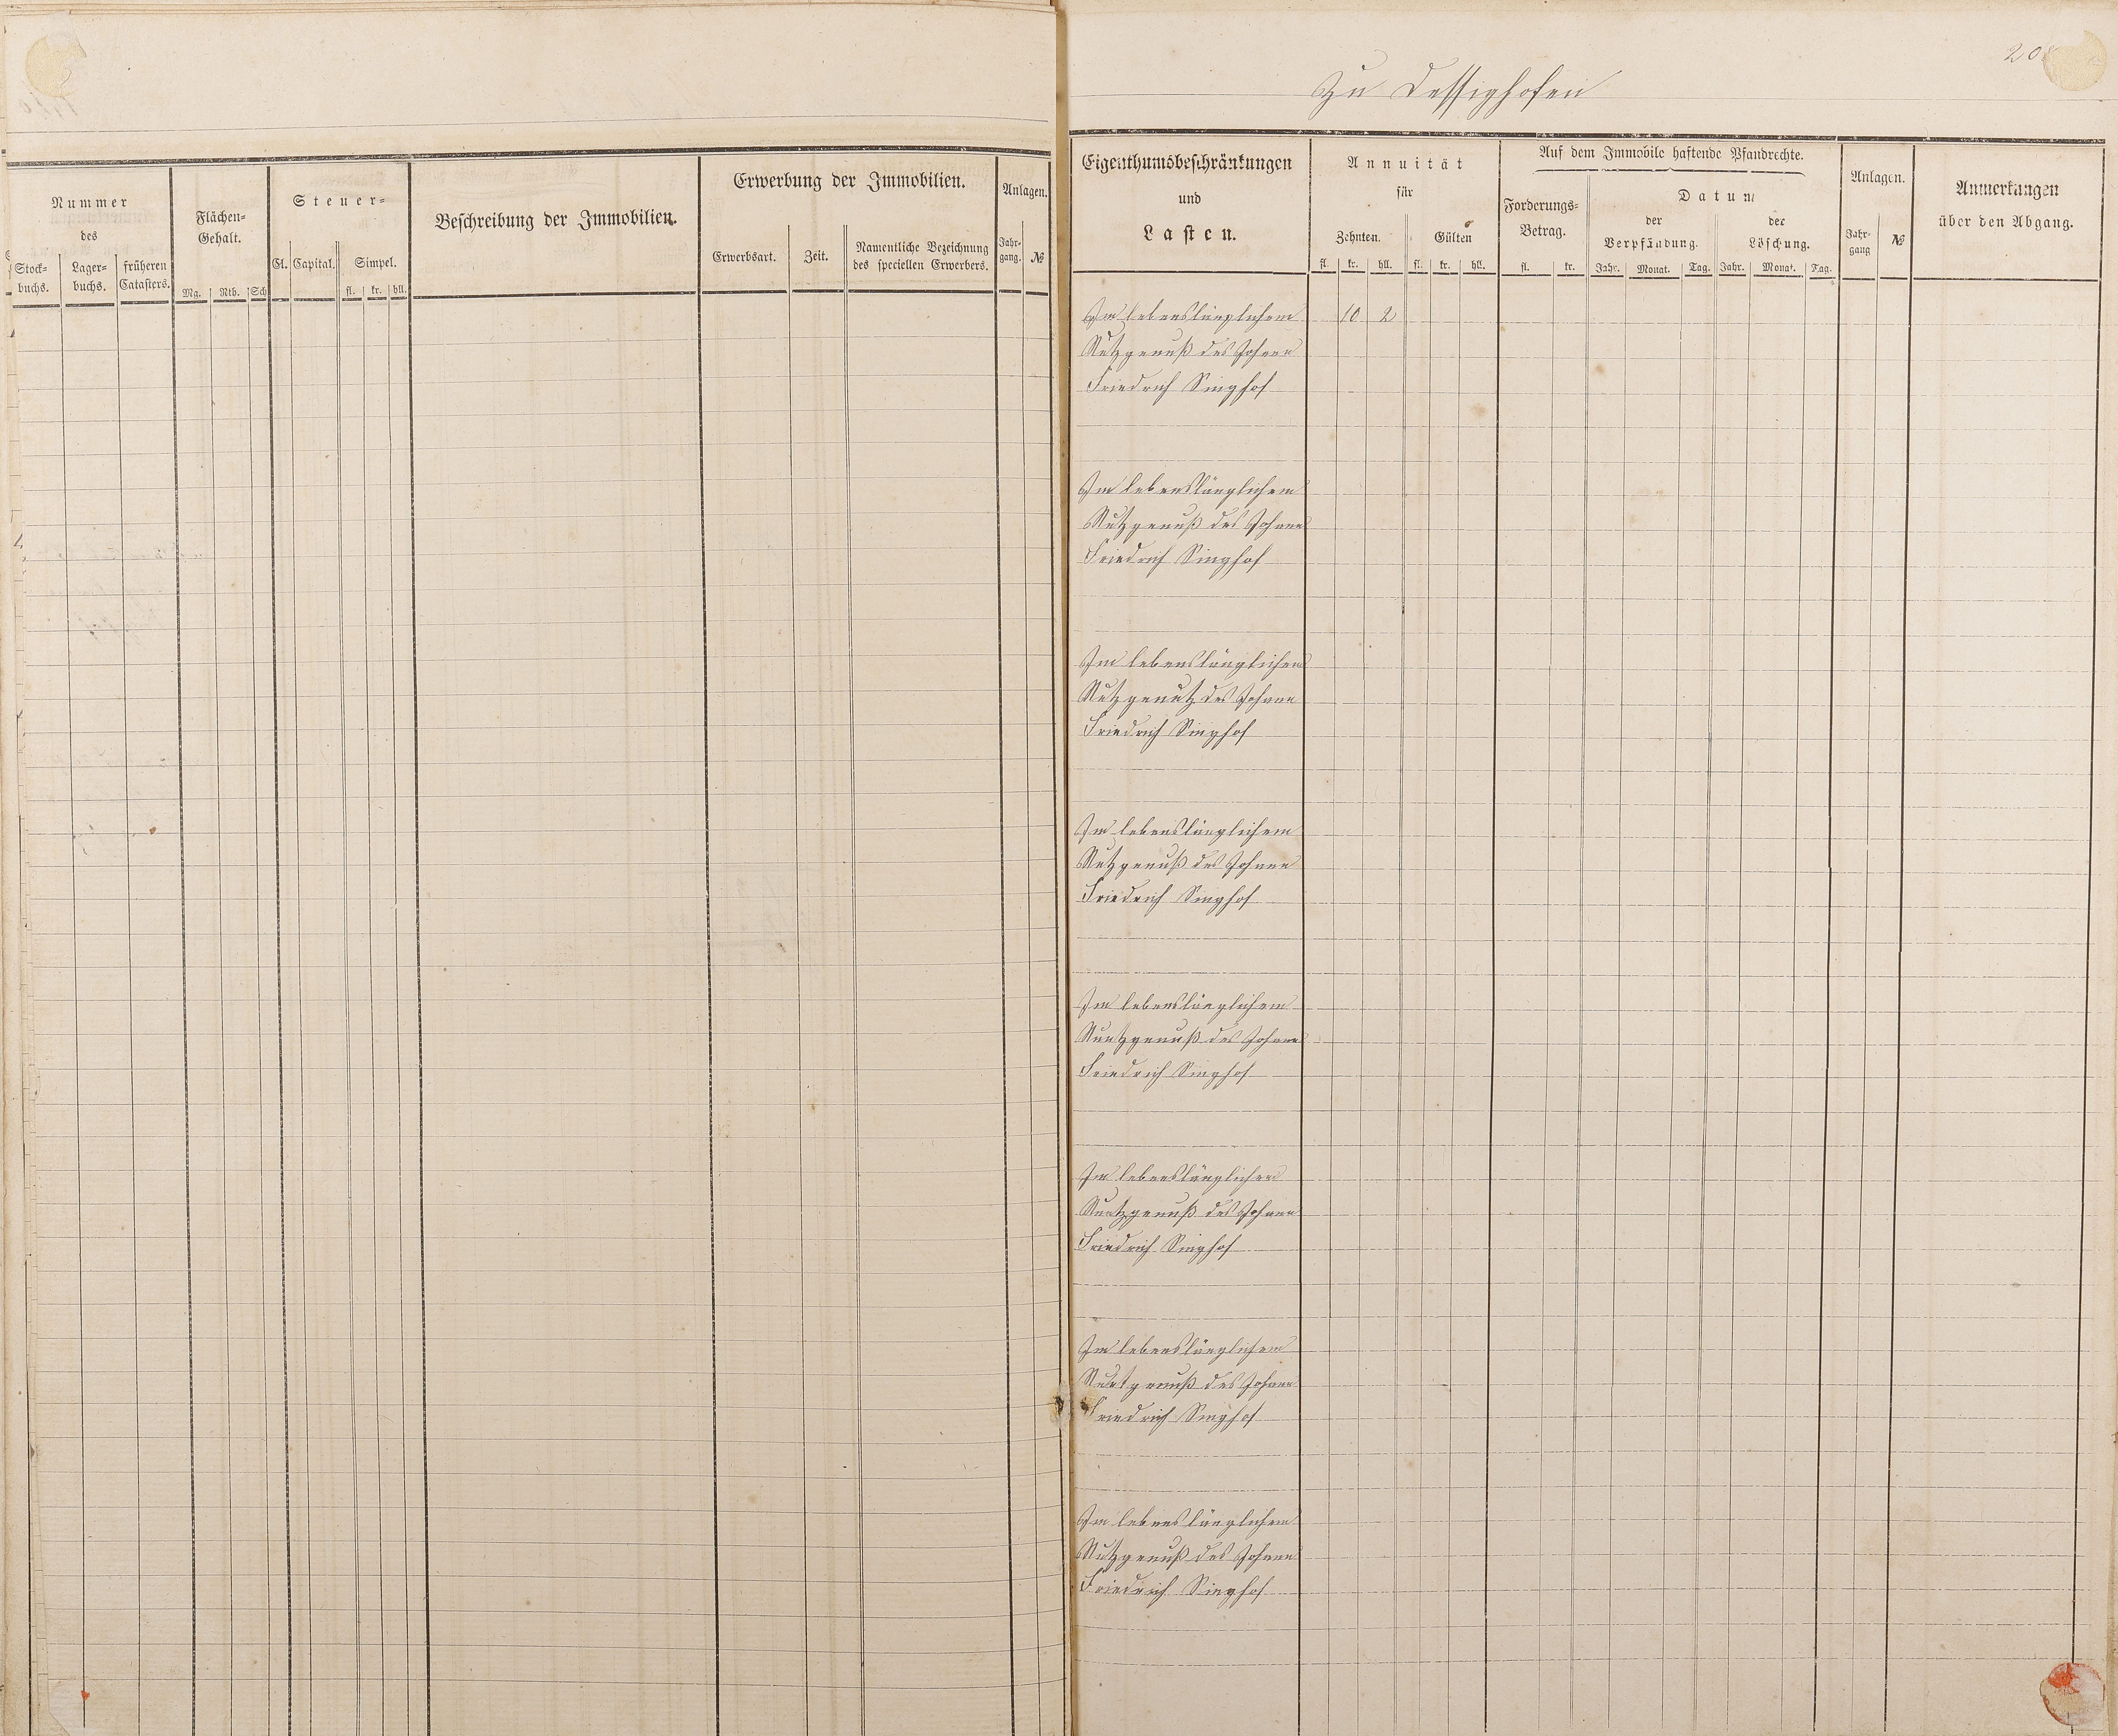 Nummer
des
Stock=
buchs.
Lager=
buchs.
früheren
Catasters.
Flächen=
Gehalt.
Mg. Rth. Sch
Steuer=
Cl. Capital. Simpel.
fl. kr. hll.
Beschreibung der Immobilien.
Erwerbung der Immobilien.
Erwerbsart. Zeit.
Namentliche Bezeichnung
des speciellen Erwerbers.
Anlagen.
Jahr-
gang. №
Zu Dessighofen
Eigenthumsbeschränkungen
und
Lasten.
Annuität
für
Zehnten. Gülten
fl. kr. hll. fl. kr. hll.
Auf dem Immobile haftende Pfandrechte.
Forderungs=
Betrag.
fl. kr.
Datum
der
Verpfändung.
der
Löschung.
Jahr. Monat. Tag. Jahr. Monat. Tag.
Anlagen.
Jahr-
gang №
Anmerkungen
über den Abgang.
Im lebenslänglichem 10 2
Nutzgenuß des Johann
Friedrich Singhof
Im lebenslänglichem
Nutzgenuß des Johann
Friedrich Singhof
Im lebenslänglichen
Nutzgenutz des Johann
Friedrich Singhof
Im lebenslänglichem
Nutzgenuß des Johann
Friedrich Singhof
Im lebenslänglichem
Nuntzgenuß des Johann
Friedrich Singhof
Im lebenslänglichen
Nuntzgenuß des Johann
Friedrich Singhof
Im lebenslänglichem
des Johann
Friedrich Singhof
Im lebenslänglichem
Nutzgenuß des Johann
Friedrich Singhof